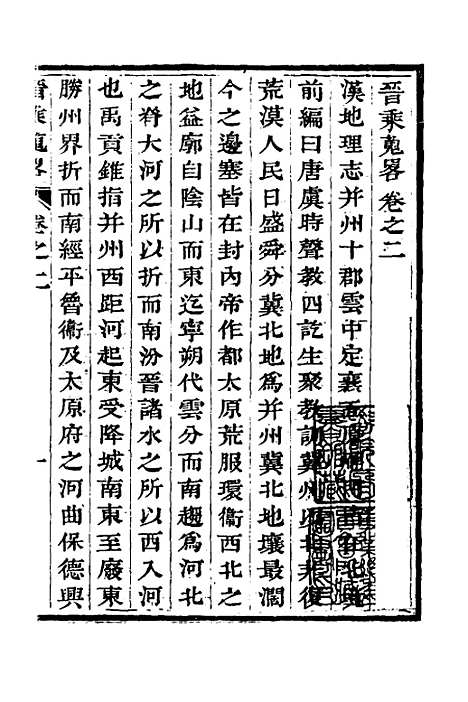 晉乘蒐畧卷之二
漢地理志幷州十郡雲中定襄
前編曰唐虞時聲教四訖生聚教訓冀州以北非復
荒漠人民日盛舜分冀北地爲幷州冀北地壤最濶
今之邊塞皆在封內帝作都太原荒服環衞西北之
地益廓自陰山而東迄寧朔代雲分而南趨爲河北
之脊大河之所以折而南汾晉諸水之所以西入河
也禹貢錐指幷州西距河起東受降城南東至廢東
勝州界折而南經平魯衞及太原府之河曲保德興
晉乘蒐畧
卷之二
一